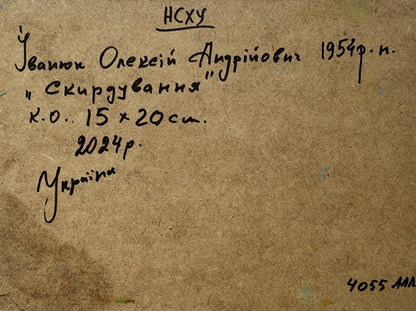 НСХУ
Іванюк Олексій Андрійович 1954р.н.
„Скирдування"
к.о. 15 x 20 см.
2024р.
Україна
4055 ААА